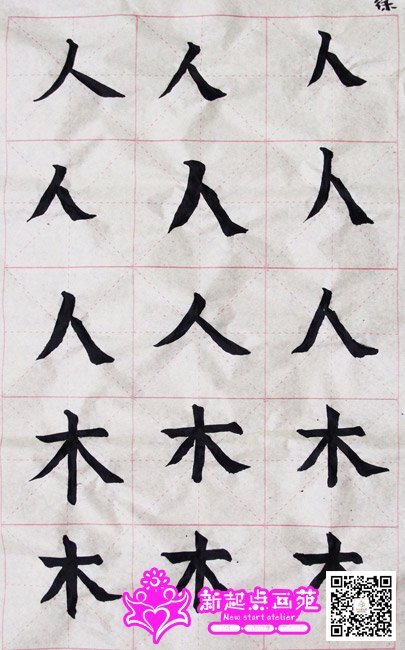 人 人 人
人 人 人
人 人 人
木 木 木
木 木 木
新起点画苑
New start atelier